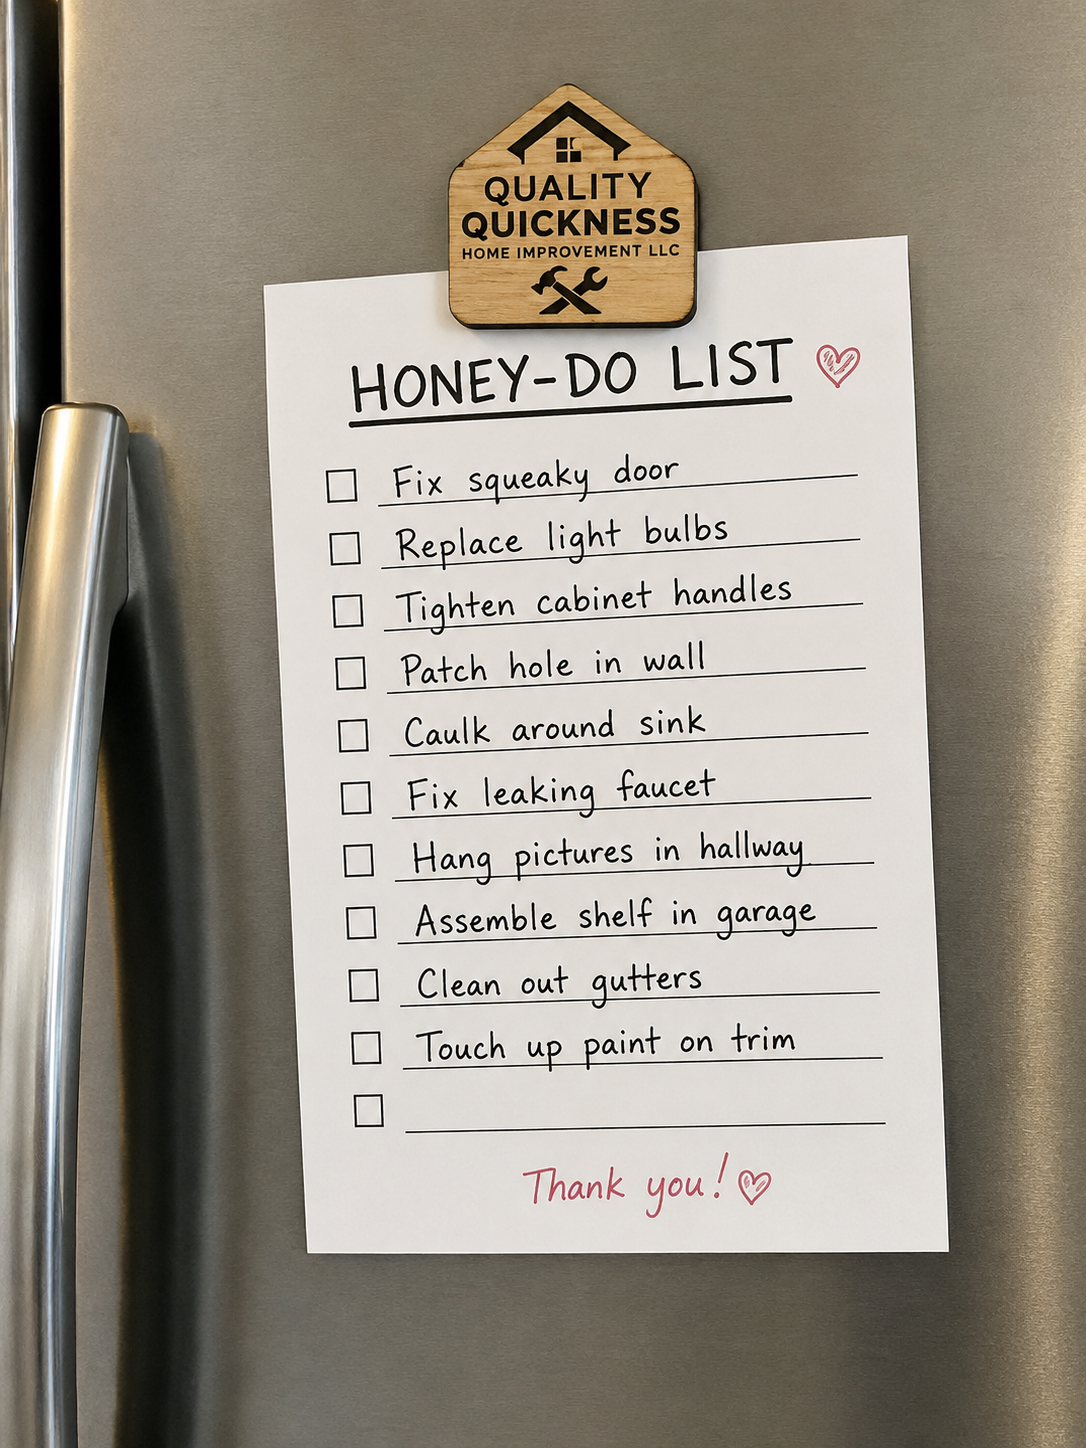 QUALITY
QUICKNESS
HOME IMPROVEMENT LLC
HONEY-DO LIST
Fix squeaky door
Replace light bulbs
Tighten cabinet handles
Patch hole in wall
Caulk around sink
Fix leaking faucet
Hang pictures in hallway
Assemble shelf in garage
Clean out gutters
Touch up paint on trim
Thank you!